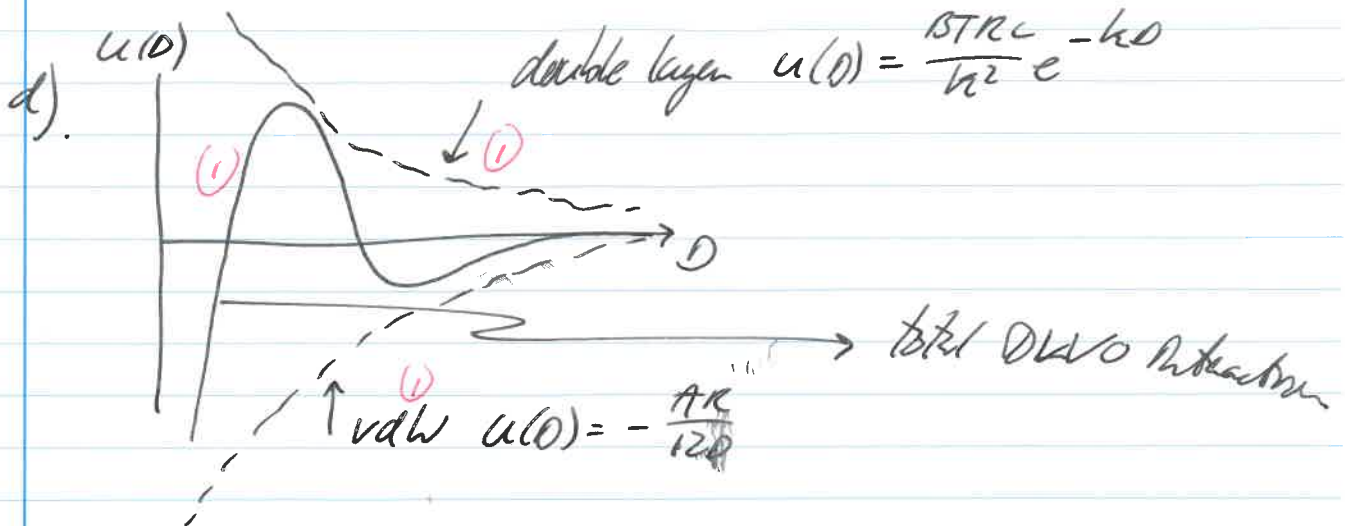 d).
U(D)
double layer U(D) = BTRC/k² e^-kD
①
①
D
total DLVO Interaction
①
vdW U(D) = - AR/12D